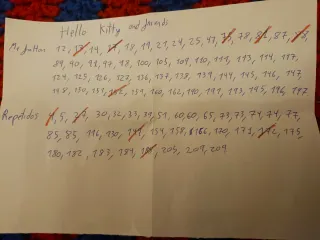 Hello Kitty and friends
Me faltan 12, 13, 14, 17, 18, 19, 21, 24, 25, 47, 78, 87,
84, 90, 93, 97, 98, 100, 105, 109, 110, 111, 113, 114, 117,
124, 125, 126, 127, 136, 137, 138, 139, 141, 145, 146, 147,
148, 150, 151, 152, 159, 160, 162, 190, 191, 193, 195, 196, 197
Repetidos 4, 5, 30, 32, 33, 39, 51, 60, 60, 65, 73, 73, 74, 74, 77,
85, 85, 116, 130, 154, 158, 166, 170, 171, 172, 175,
180, 182, 183, 189, 205, 209, 209